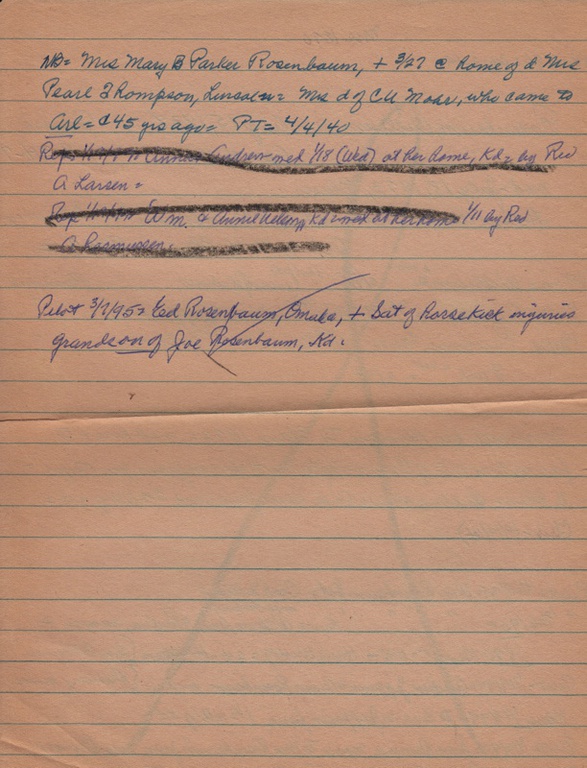 NB= Mrs Mary B Parker Rosenbaum, + 3/27 @ home of d Mrs
Pearl Thompson, Lincoln= Mrs d of C U Moar, who came to
Arl= c 45 yrs ago= PT= 4/4/40
Andrew med 1/18 (Wed) at her home, Kd= by Rev
A Larsen=
Wm. & Annie Kd med at her home 1/11 by Rev
A Rasmussen.
Pilot 3/7/95= Ed Rosenbaum, Omaha, + Sat of horse kick injuries
grandson of Joe Rosenbaum, Kd.